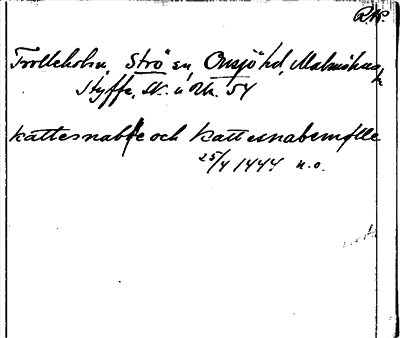 R.N.
Trolleholm, Strö sn, Onsjö hd, Malmöhus
Styffe, Sk. u. Un. 54
kattesnabbe och kattesnabemølle
25/4 1444 n.o.